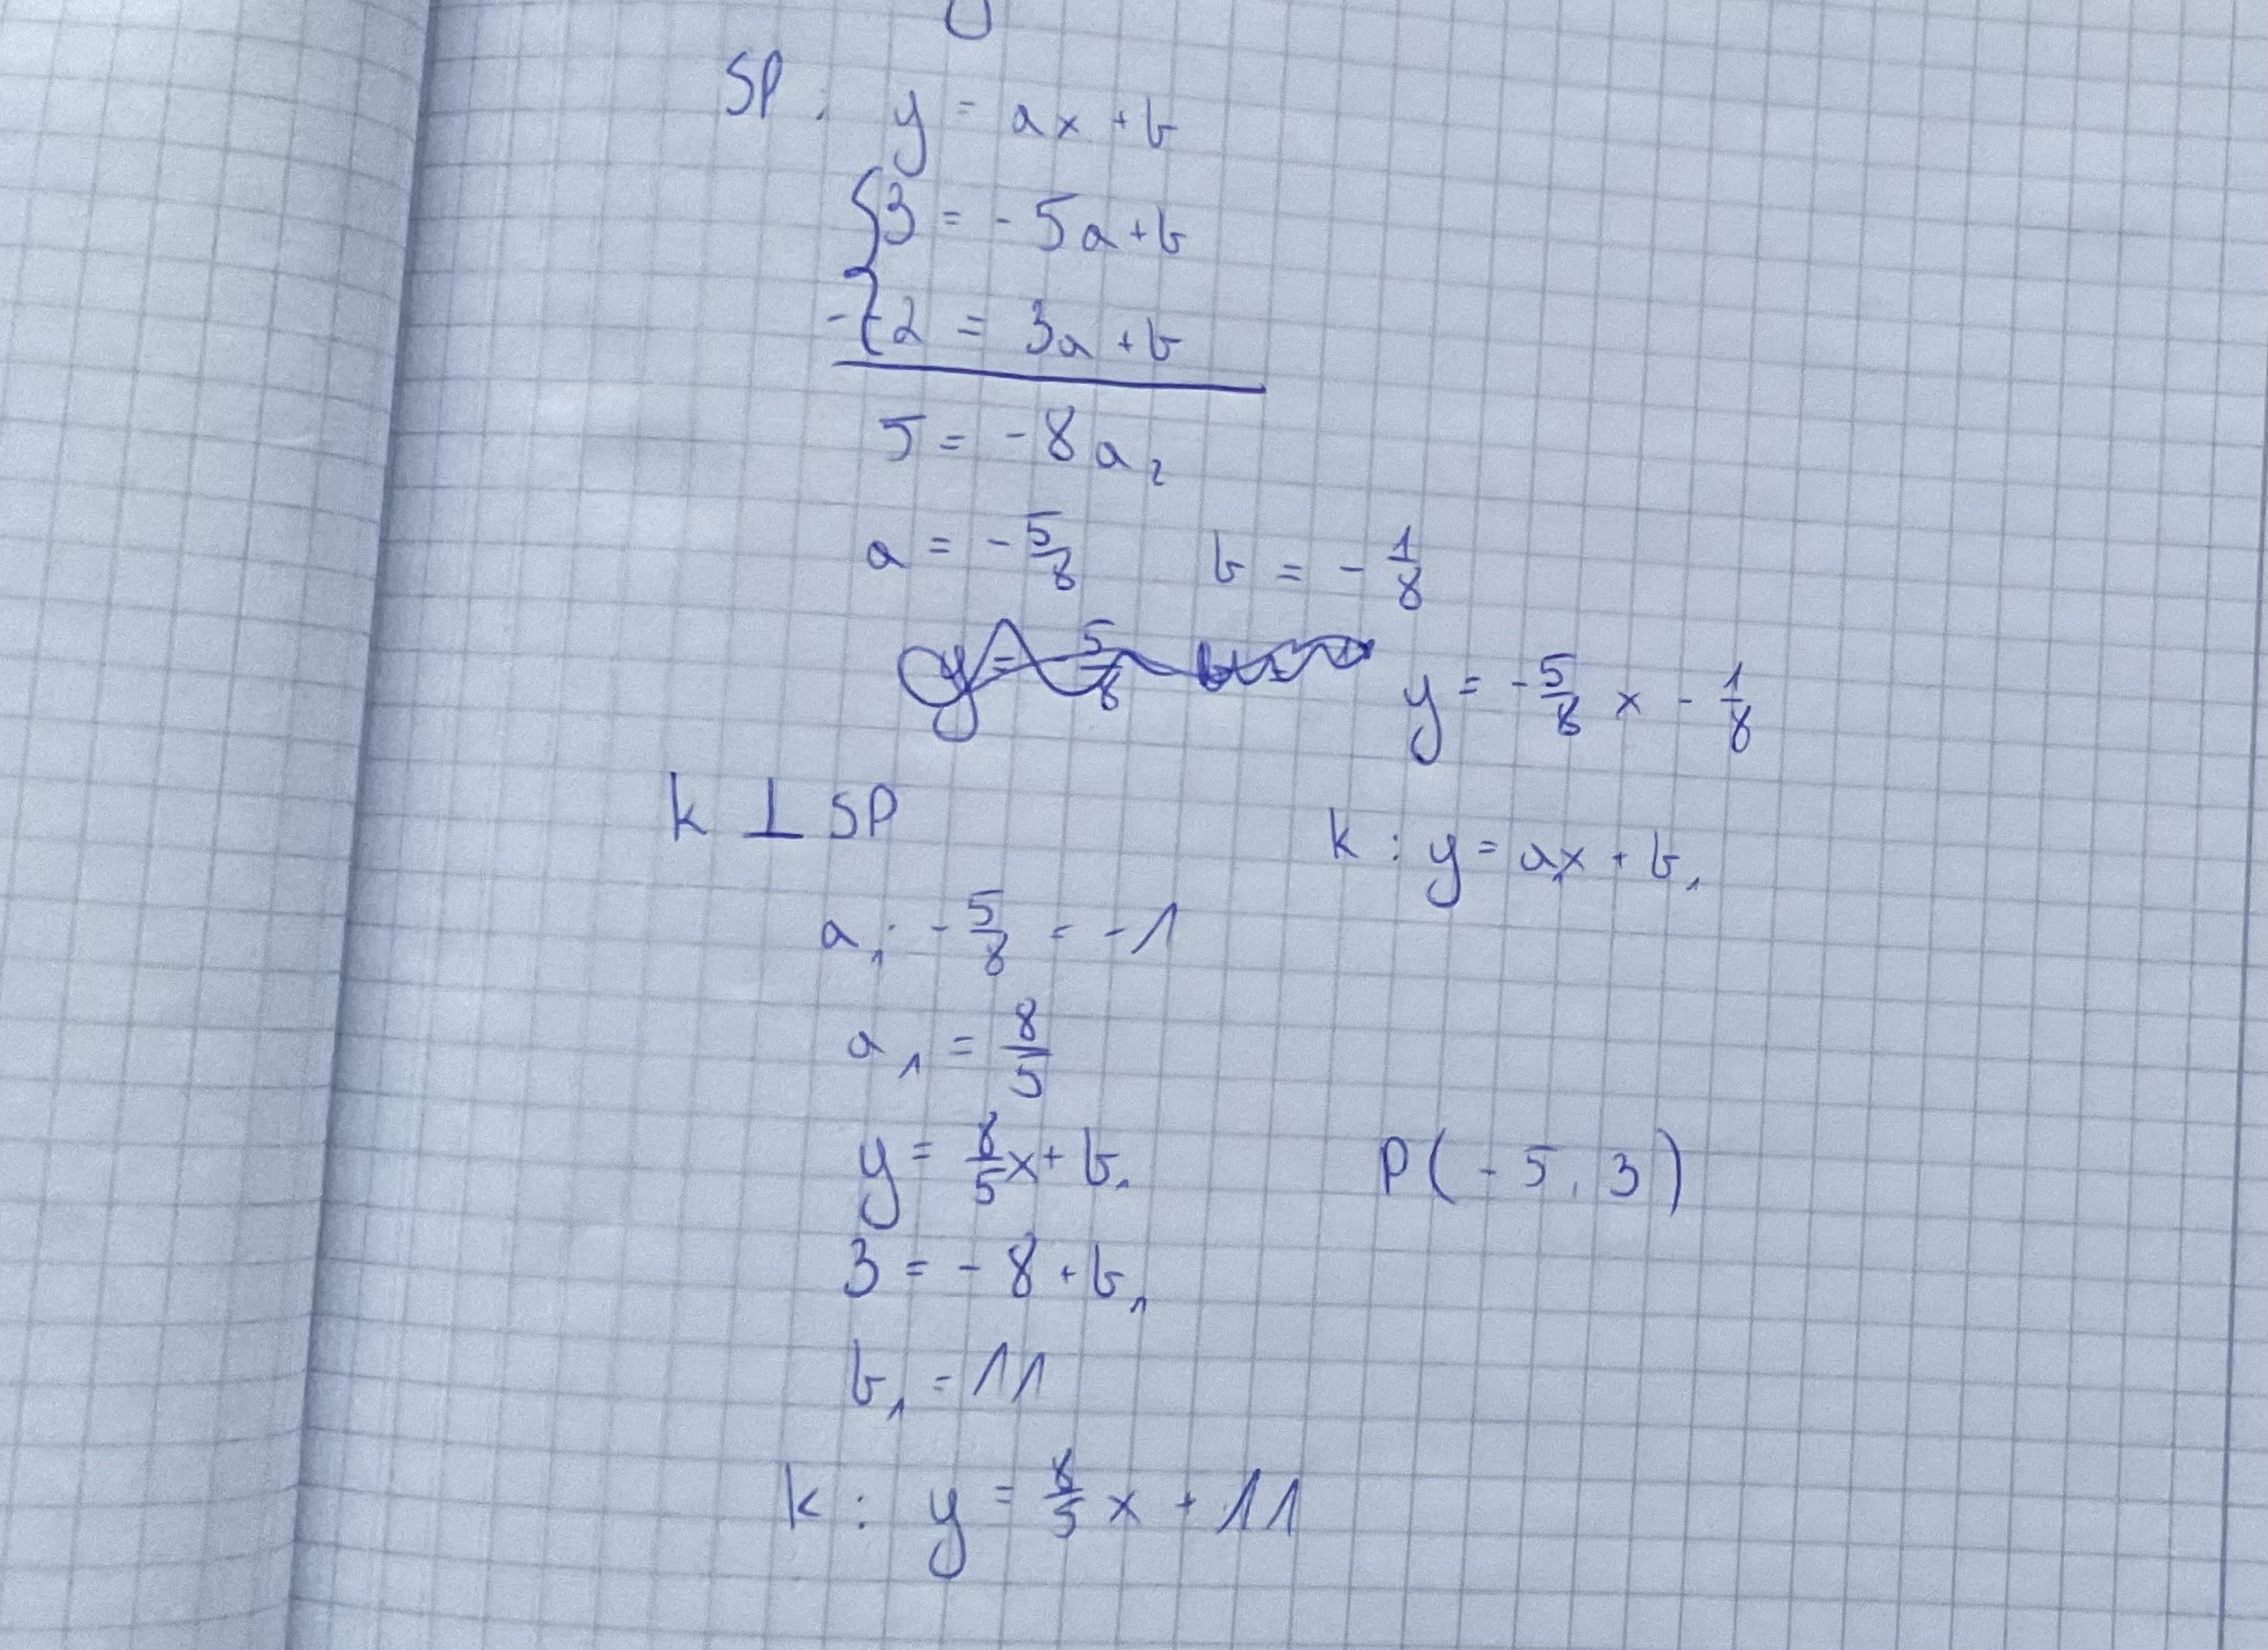 SP: y = ax + b
{3 = -5a + b
-{-2 = 3a + b
5 = -8a₂
a = -5/8 b = -1/8
y = -5/8x - 1/8
k ⊥ SP k: y = a₁x + b₁
a₁ · -5/8 = -1
a₁ = 8/5
y = 8/5x + b₁ P(-5, 3)
3 = -8 + b₁
b₁ = 11
k: y = 8/5x + 11